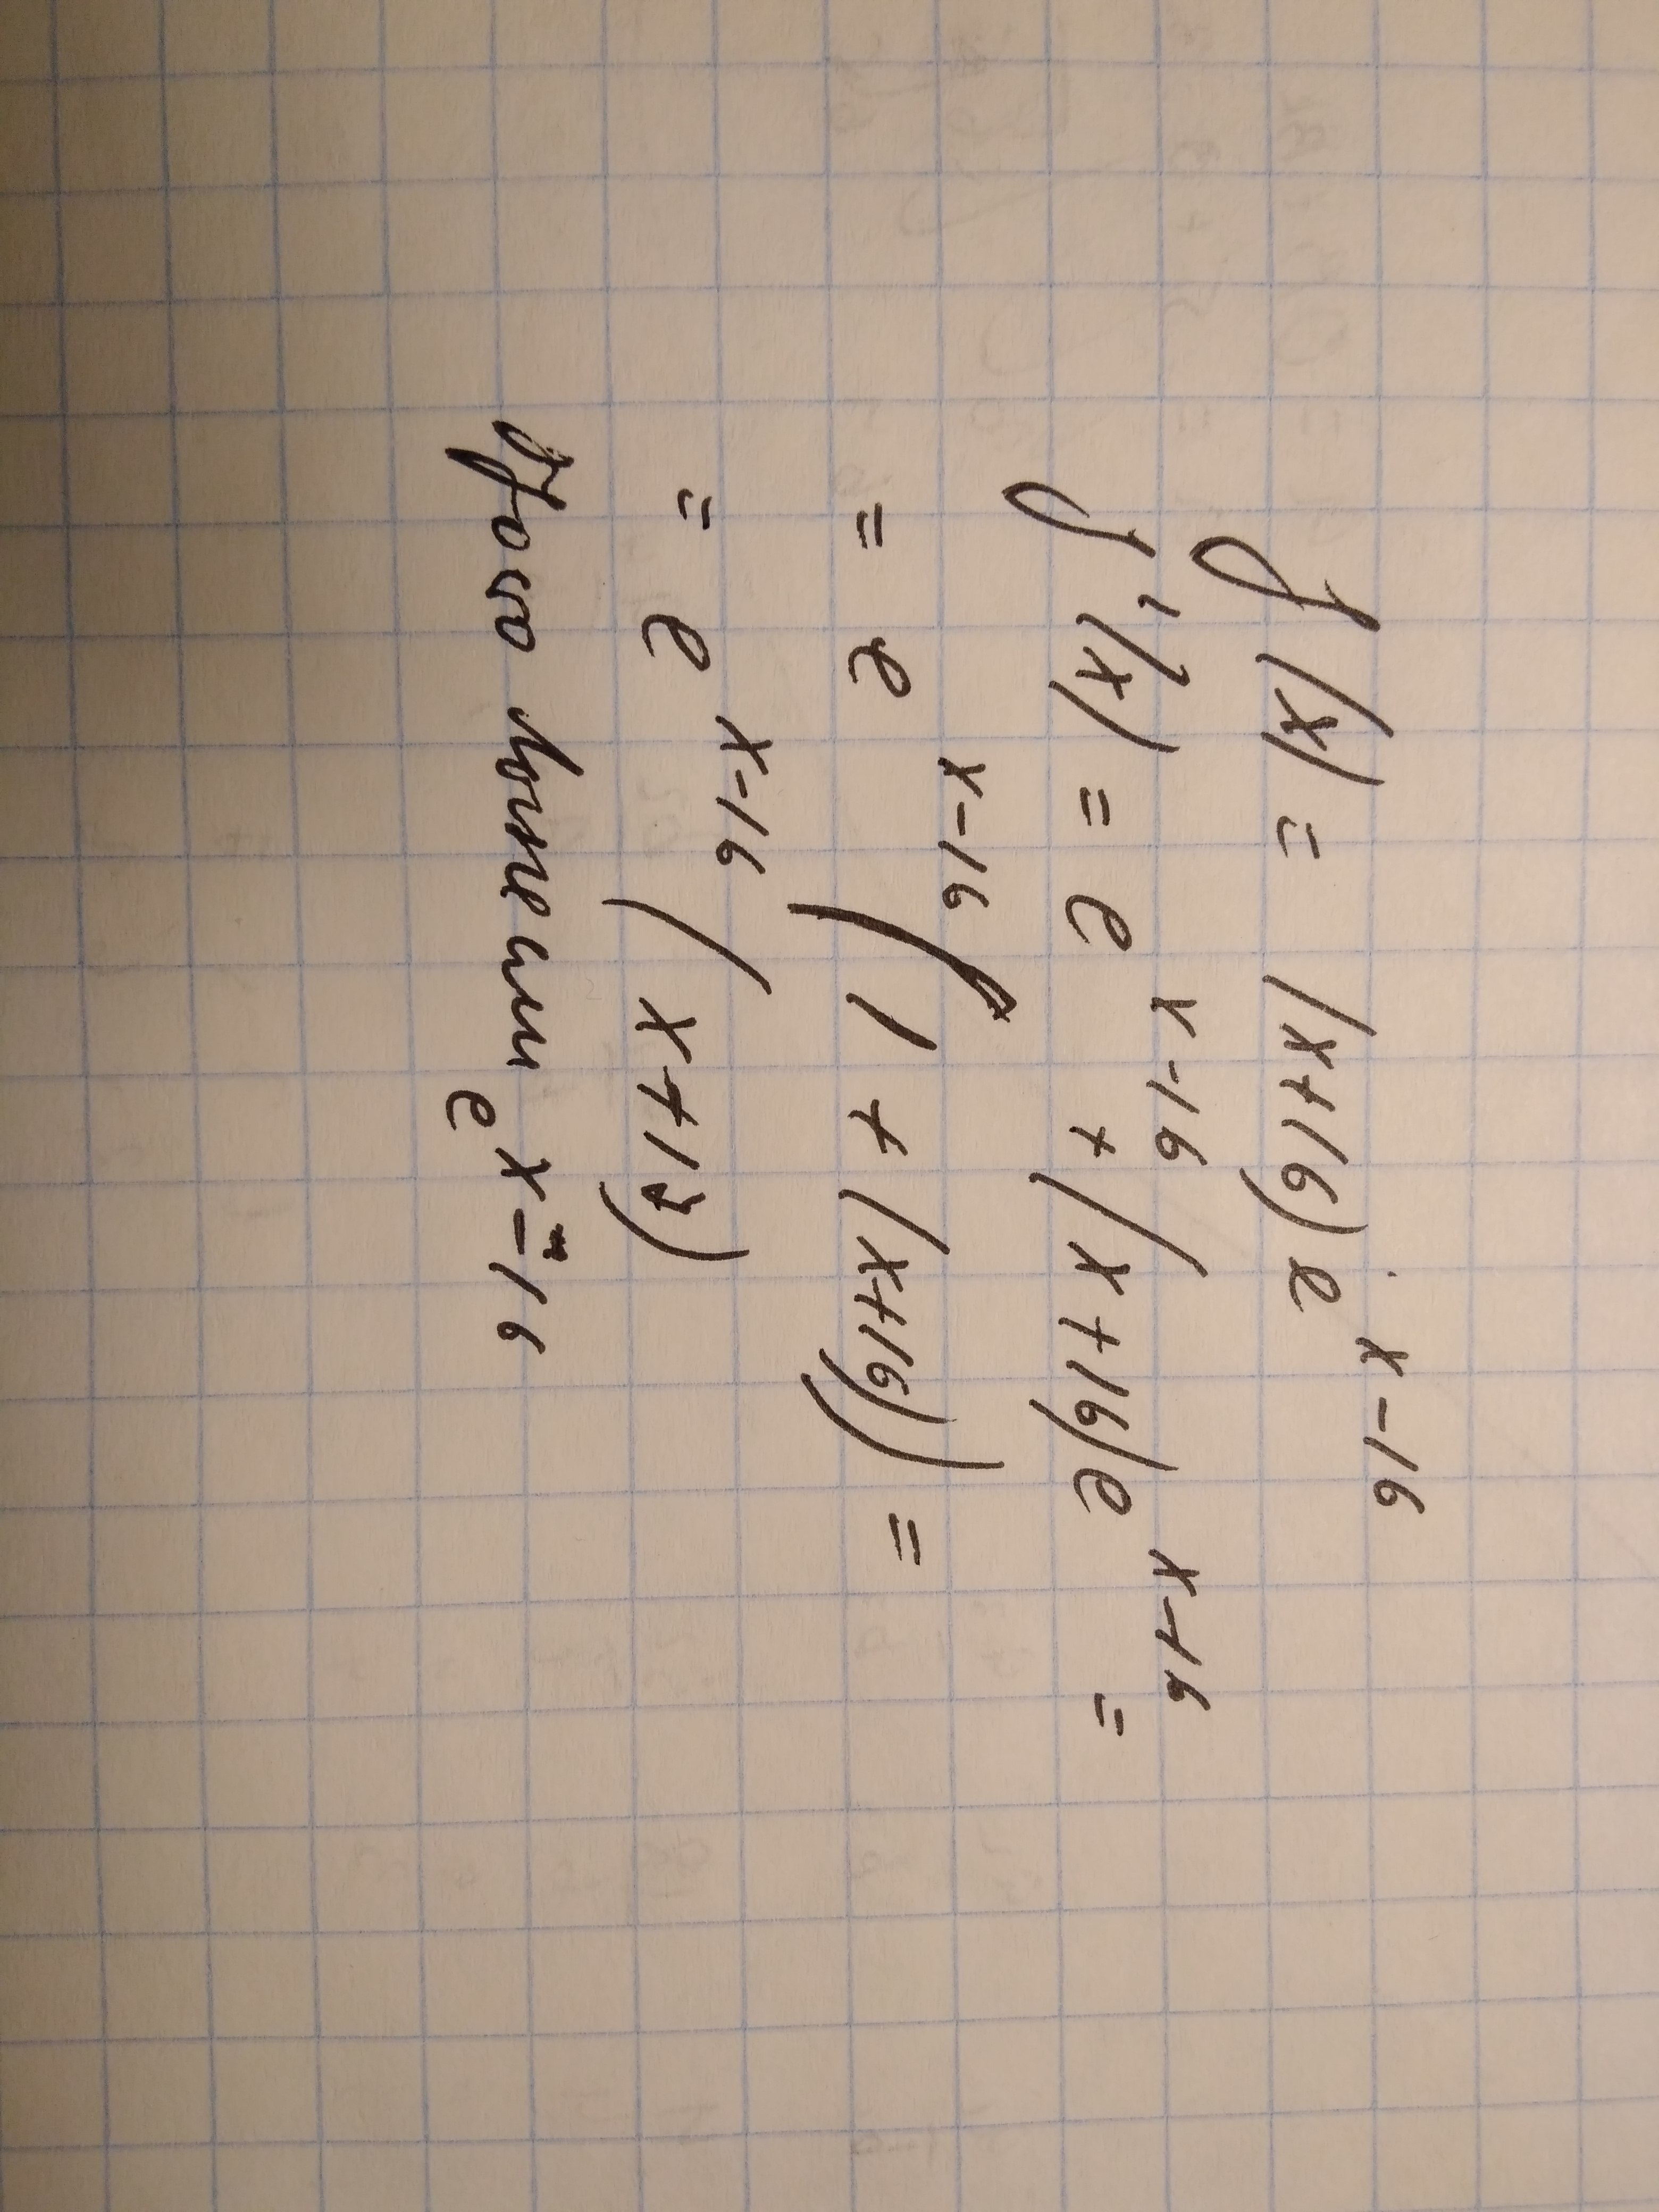 f(x) = (x+16)e^{x-16}
f'(x) = e^{x-16} + (x+16)e^{x-16} =
= e^{x-16} (1 + (x+16)) =
= e^{x-16} (x+17)
e^{x-16}